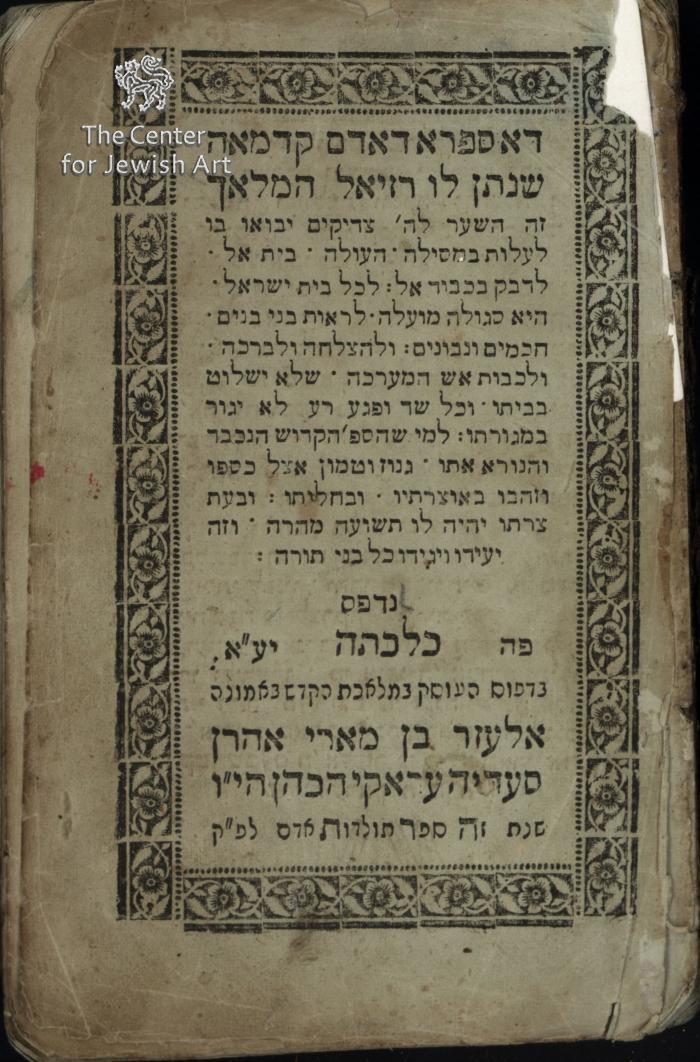 The Center
for Jewish Art
דא ספרא דאדם קדמאה
שנתן לו רזיאל המלאך
זה השער לה׳ צדיקים יבואו בו
לעלות במסילה · העולה · בית אל ·
לדבק בכבוד אל : לכל בית ישראל ·
היא סגולה מועלה · לראות בני בנים ·
חכמים ונבונים : ולהצלחה ולברכה ·
ולכבות אש המערכה · שלא ישלוט
בביתו · וכל שד ופגע רע לא יגור
במגורתו : למי שהספ׳ הקדוש הנכבד
והנורא אתו · גנוז וטמון אצל כספו
וזהבו באוצרתיו · ובחליתו : ובעת
צרתו יהיה לו תשועה מהרה · וזה
יעידו ויגידו כל בני תורה :
נדפס
פה כלכתה יע״א :
בדפוס העוסק במלאכת הקדש באמונה
אלעזר בן מארי אהרן
סעדיה עראקי הכהן הי״ו
שנת זה ספר תולדות אדם לפ״ק